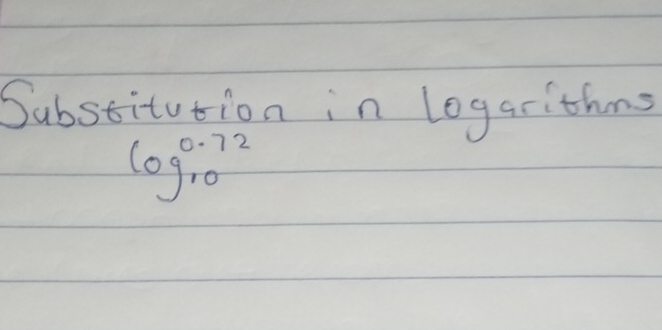 Substitution in logarithms
log₁₀ 0.72